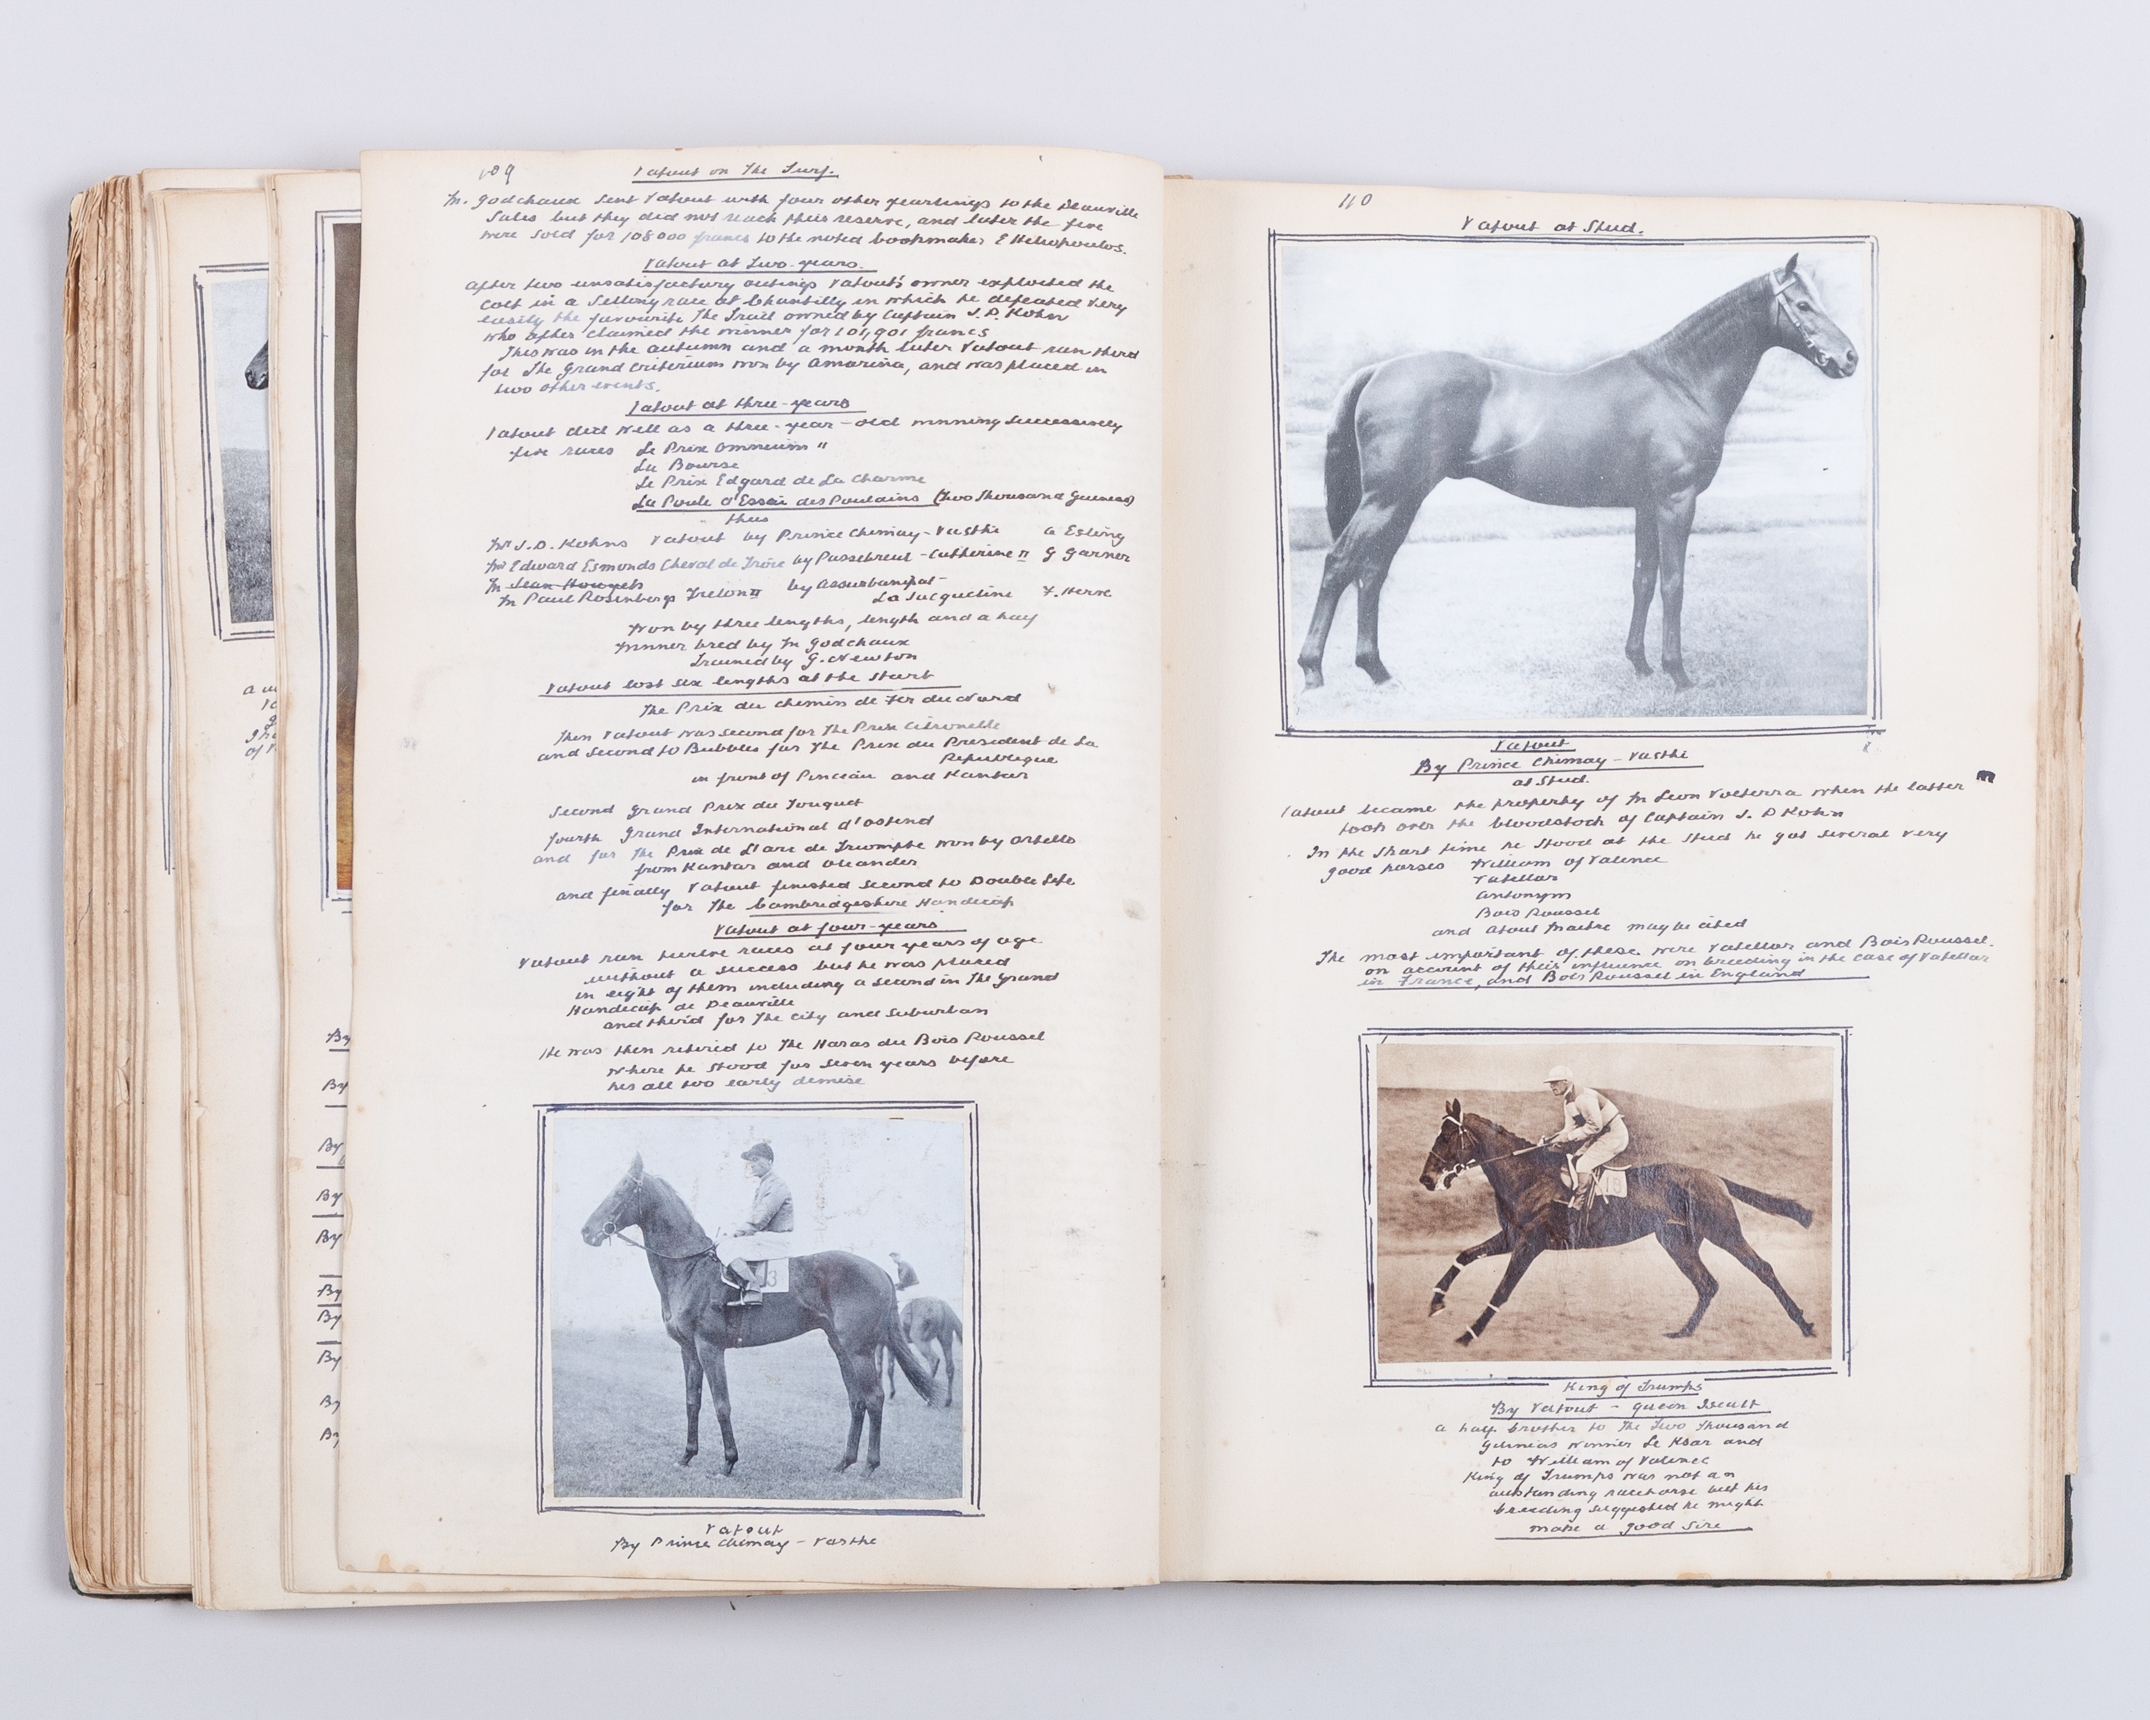 109
Vatout on The Turf.
Mr. Godchaux sent Vatout with four other yearlings to the Deauville
Sales but they did not reach their reserve, and later the five
were sold for 108000 francs to the noted bookmaker E Heliopoulos.
Vatout at Two-years.
After two unsatisfactory outings Vatout's owner exploited the
colt in a Selling race at Chantilly in which he defeated very
easily the favourite The Trail owned by Captain J. D. Kohn
who after claimed the winner for 101,901 francs
This was in the autumn and a month later Vatout ran third
for The Grand Criterium won by Amorina, and was placed in
two other events.
Vatout at three-years
Vatout did well as a three-year-old running successively
five races Le Prix Omnium "
La Bourse
Le Prix Edgard de La Charme
La Poule d'Essai des Poulains (Two Thousand Guineas)
thus
Mr J.D. Kohns Vatout by Prince Chimay - Vasthi A Esling
Mr Edward Esmonds Cheval de Troie by Passebreul - Catherine II G Garner
Mr Jean
Mr Paul Rosenbergs Frelon II by Assurbanipal -
La Jacqueline F. Herve
Won by three lengths, length and a half
Winner bred by Mr Godchaux
Trained by G. Newton
Vatout lost six lengths at the start
The Prix du Chemin de Fer du Nord
Then Vatout was second for The Prix Citronelle
and second to Bubbles for The Prix du President de La
Republique
in front of Pinceau and Kantar
Second Grand Prix du Touquet
fourth Grand International d'Ostend
and for The Prix de L'arc de Triomphe won by Ortello
from Kantar and Oleander
and finally Vatout finished second to Double Life
for The Cambridgeshire Handicap
Vatout at four-years
Vatout ran twelve races at four years of age
without a success but he was placed
in eight of them including a second in The Grand
Handicap de Deauville
and third for The City and Suburban
He was then retired to The Haras du Bois Roussel
where he stood for seven years before
his all too early demise
3
Vatout
By Prince Chimay - Vasthi
110
Vatout at Stud.
Vatout
By Prince Chimay - Vasthi
at Stud.
Vatout became the property of Mr Leon Volterra when the latter
took over the bloodstock of Captain J. D Kohn
In the short time he stood at the Stud he got several very
good horses William of Valence
Vatellor
Antonym
Bois Roussel
and Atout Maitre may be cited
The most important of these were Vatellor and Bois Roussel.
on account of their influence on breeding in the case of Vatellor
in France, and Bois Roussel in England
King of Trumps
By Vatout - Queen Iseult
a half brother to The Two Thousand
Guineas Winner Le Ksar and
to William of Valence
King of Trumps was not an
outstanding racehorse but his
breeding suggested he might
make a good sire
a
By
By
By
By
By
By
By
By
By
By